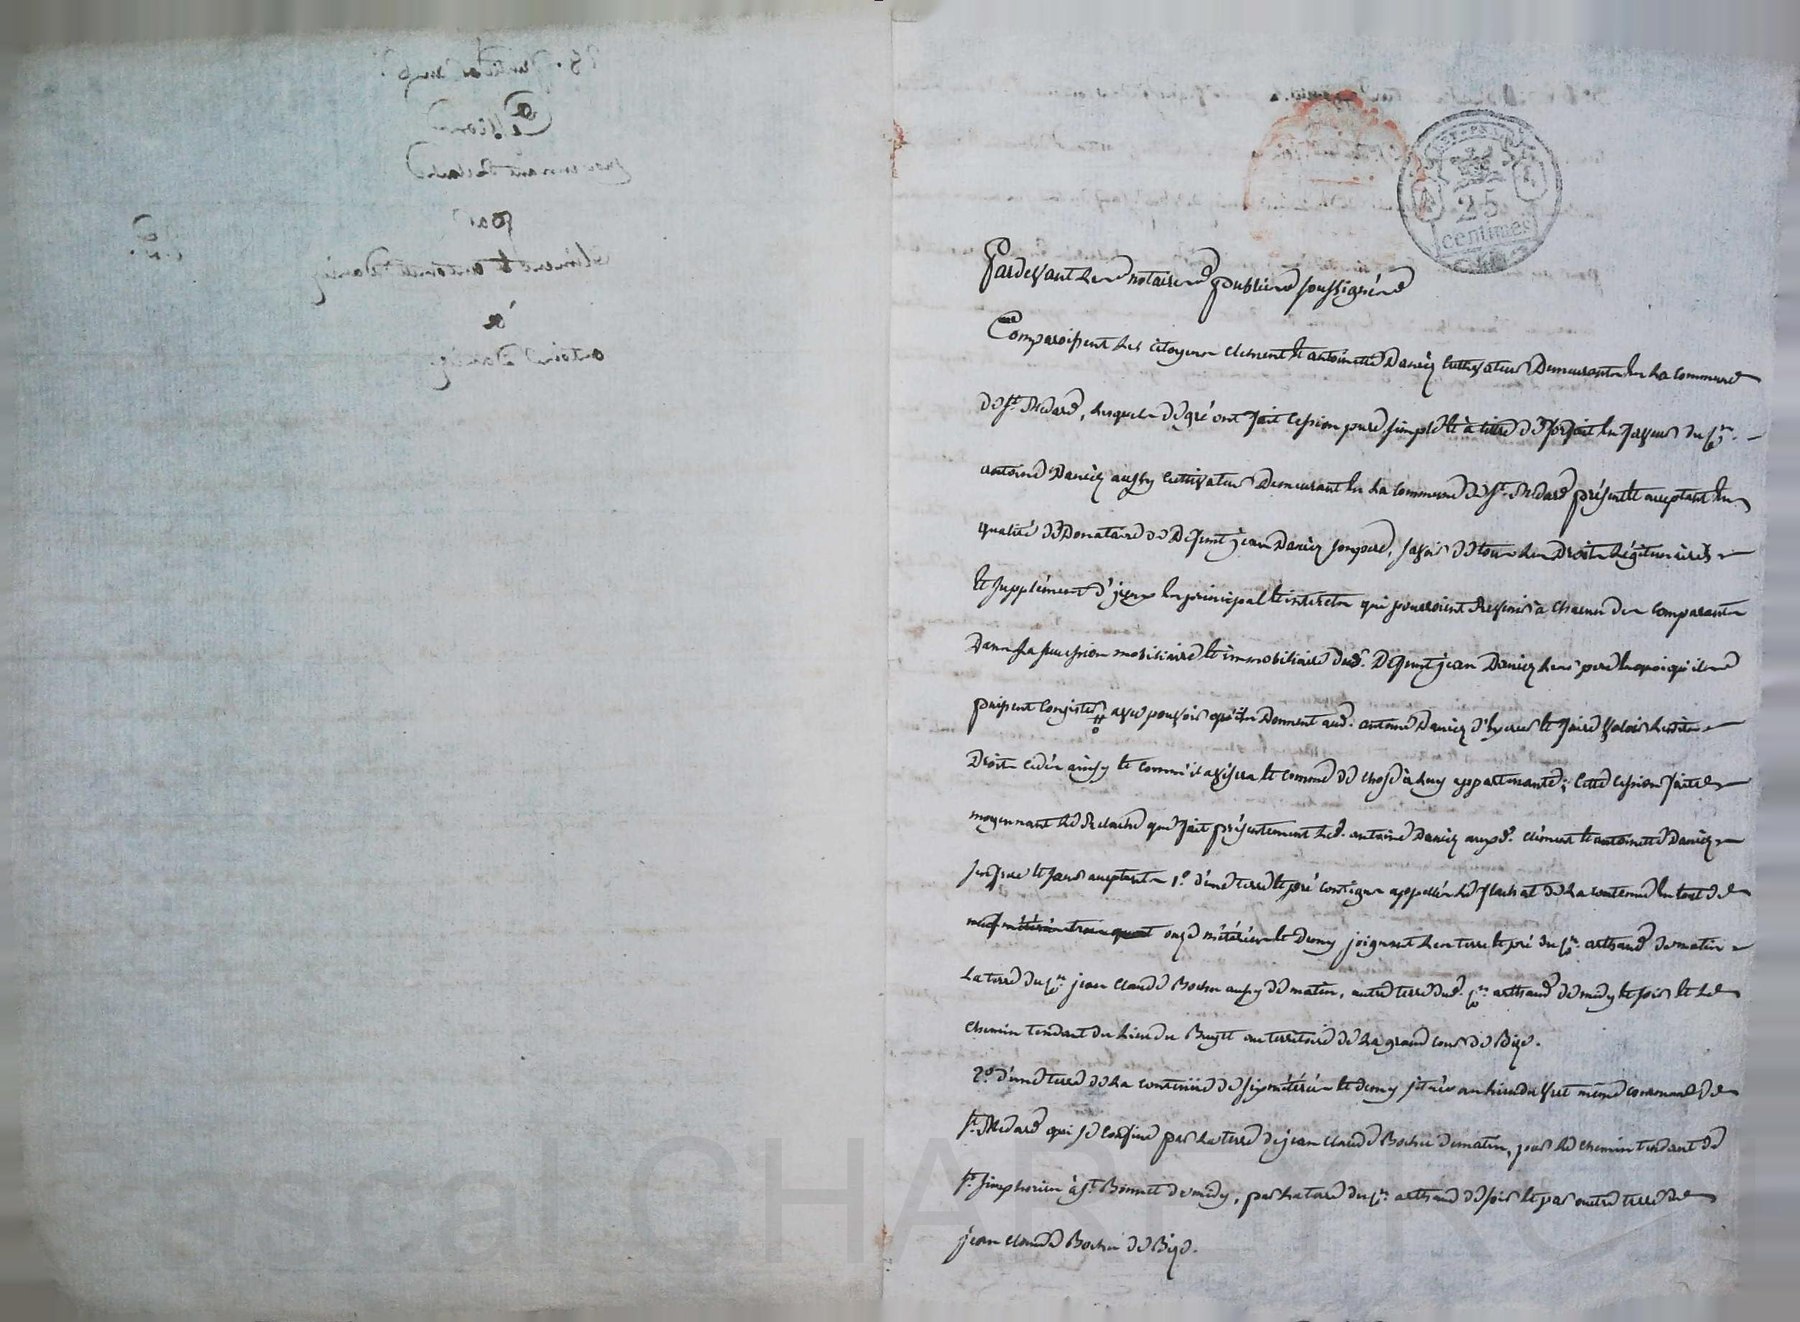 25
centimes
Pardevant les notaires publics soussignés
Comparoissent les citoyens Clement et antoinette Daniez Cultivateurs Demeurants en la commune
de St. Medard, lesquels de gré ont fait cession pure simple et à titre de forfait en faveur du Cen.
antoine Daniez aussy Cultivateur Demeurant en la commune de St. Medard présent et acceptant en
qualité de Donataire de Defunt jean Daniez son pere, savoir de tous les Droits Légitimaires
et supplément d'iceux en principal et interets qui pourroient Revenir à chacun des comparants
Dans la succession mobiliaire et immobiliaire dud. Defunt jean Daniez leur pere en quoi qu'ils
puissent consister avec pouvoir qu'ils Donnent aud. antoine Daniez d'exercer et faire valoir lesdits
Droits cedés ainsy et comme il avisera et comme de chose à luy appartenante; Cette cession faite
moyennant le Relaché que fait présentement led. antoine Daniez auxd. Clément et antoinette Daniez
frere et sœur acceptants 1.o d'une terre et pré contigus appellés le flachat de la contenue en tout de
onze métérées et demy joignant les terre et pré du Cen. arthaud de matin
La terre du Cen. jean Claude Bochu aussy de matin, autre terre dud. Cen. arthaud de midy et soir et le
chemin tendant du lieu du au territoire de la grand cour de Bize.
2.o d'une terre de la contenüe de six métérées et demy située au lieu du même commune de
St. Medard qui se confine par la terre de jean Claude Bochu de matin, par le chemin tendant de
St. Simphorien à St. Bonnet de midy, par la terre du Cen. arthaud de soir et par autre terre de
jean Claude Bochu de Bize.
CHAREYRON